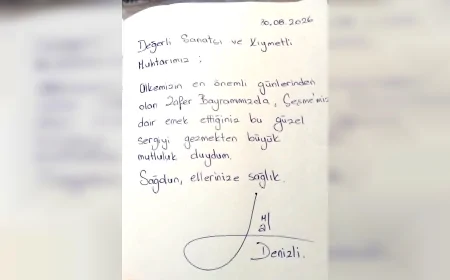 30.08.2026
Değerli Sanatçı ve Kıymetli
Muhtarımız ;
Ülkemizin en önemli günlerinden
olan Zafer Bayramımızda, Çeşme'mize
dair emek ettiğiniz bu güzel
sergiyi gezmekten büyük
mutluluk duydum.
Sağolun, ellerinize sağlık.
Denizli.